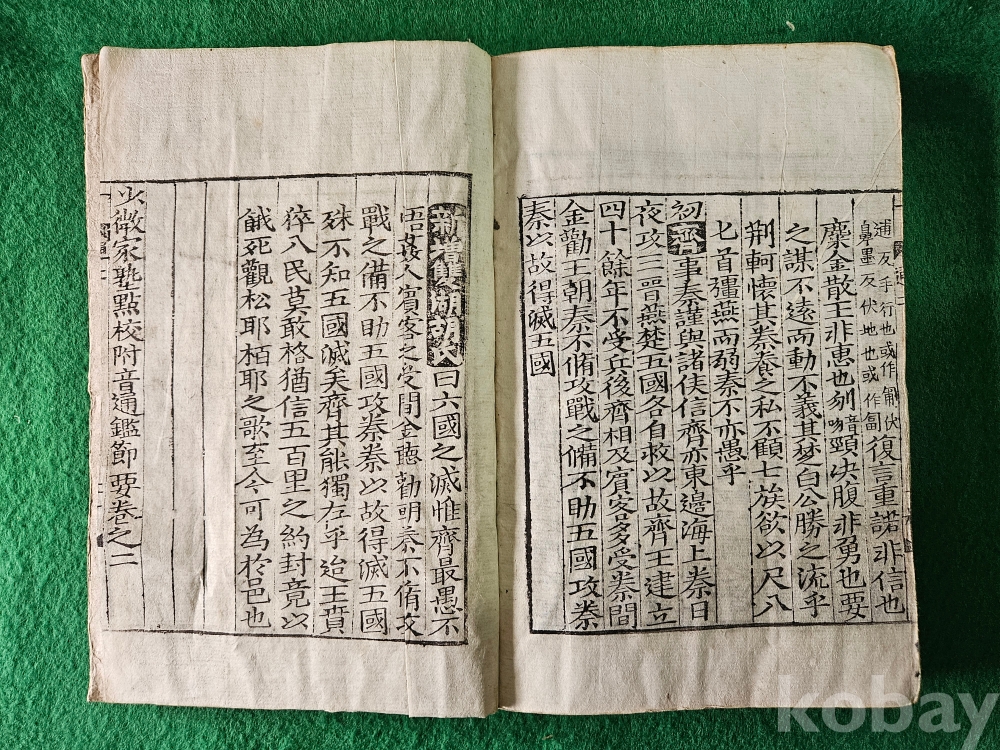 逋友手行也或作匍伏
鼻墨友伏地也或作匐
復言重諾非信也
糜金散玉非惠也刎音吻頸決腹非勇也要
之謀不遠而動不義其楚白公勝之流乎
荆軻懷其豢養之私不顧七族欲以尺八
匕首彊燕而弱秦不亦愚乎
初齊事秦謹與諸侯信齊亦東邊海上秦日
夜攻三晉燕楚五國各自救以故齊王建立
四十餘年不受兵後齊相及賓客多受秦間
金勸王朝秦不脩攻戰之備不助五國攻秦
秦以故得滅五國
新增雙湖胡氏曰六國之滅惟齊最愚不
悟姦人賓客之受間金聽勸朝秦不脩攻
戰之備不助五國攻秦秦以故得滅五國
殊不知五國滅矣齊其能獨存乎迨王賁
猝入民莫敢格猶信五百里之約封竟以
餓死觀松耶栢耶之歌至今可為於邑也
少微家塾點校附音通鑑節要卷之二
kobay